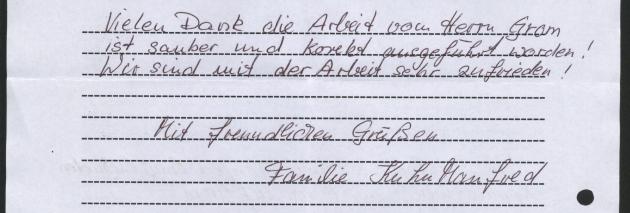 Vielen Dank die Arbeit vom Herrn Gram
ist sauber und korekt ausgeführt worden!
Wir sind mit der Arbeit sehr zufrieden!
Mit freundlichen Grüßen
Familie Kuhn Manfred